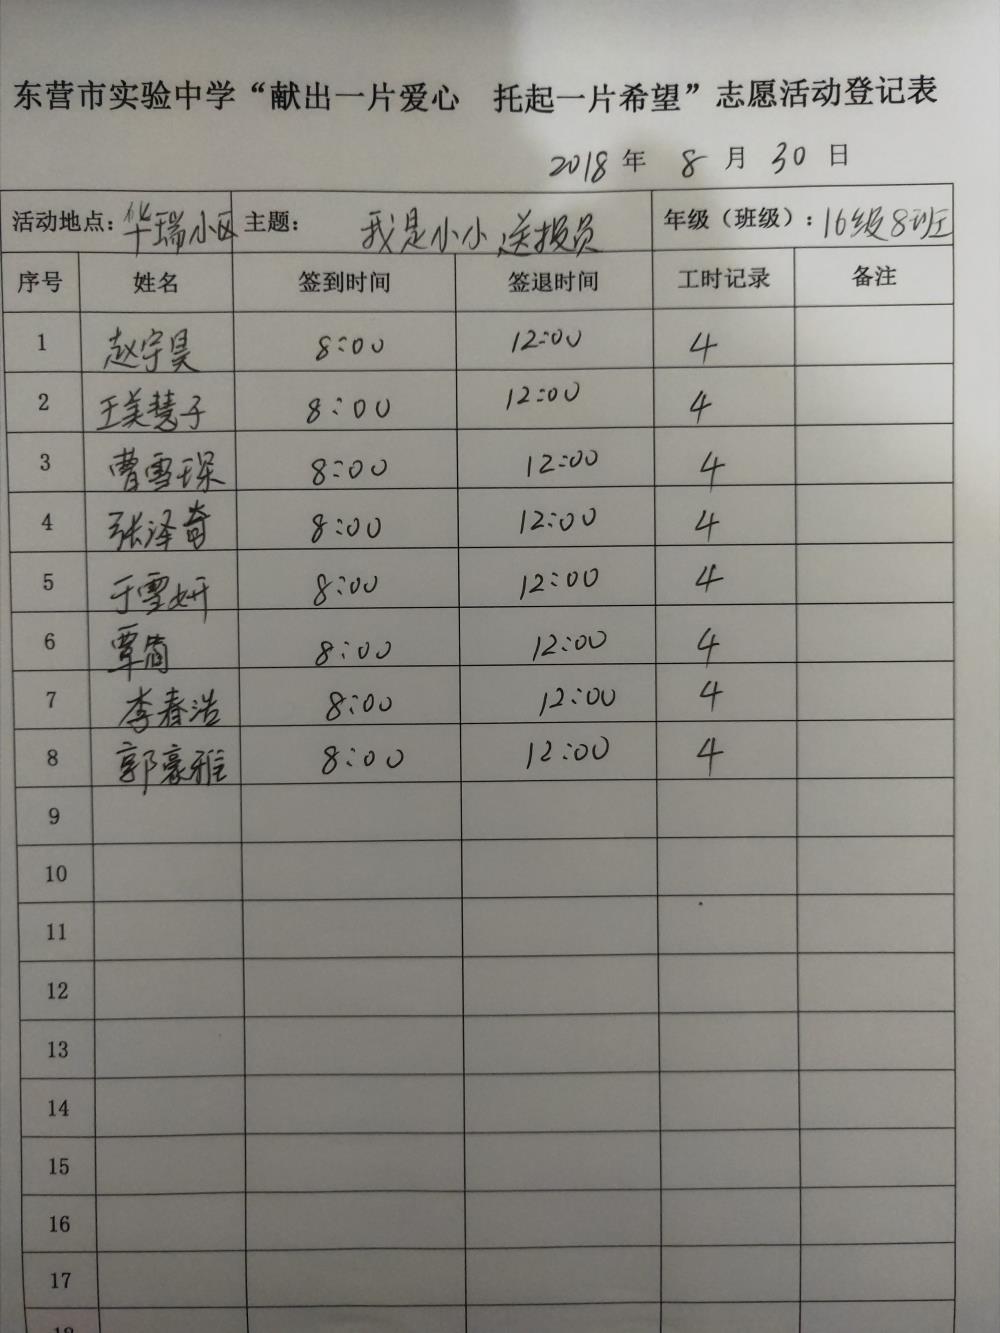 东营市实验中学“献出一片爱心 托起一片希望”志愿活动登记表
2018 年 8 月 30 日
活动地点：华瑞小区 主题： 我是小小送报员 年级（班级）：16级8班
序号 姓名 签到时间 签退时间 工时记录 备注
1 赵宇昊 8:00 12:00 4
2 王美慧子 8:00 12:00 4
3 曹雪琛 8:00 12:00 4
4 张泽奇 8:00 12:00 4
5 于雪妍 8:00 12:00 4
6 覃简 8:00 12:00 4
7 李春浩 8:00 12:00 4
8 郭豪雅 8:00 12:00 4
9
10
11
12
13
14
15
16
17
18